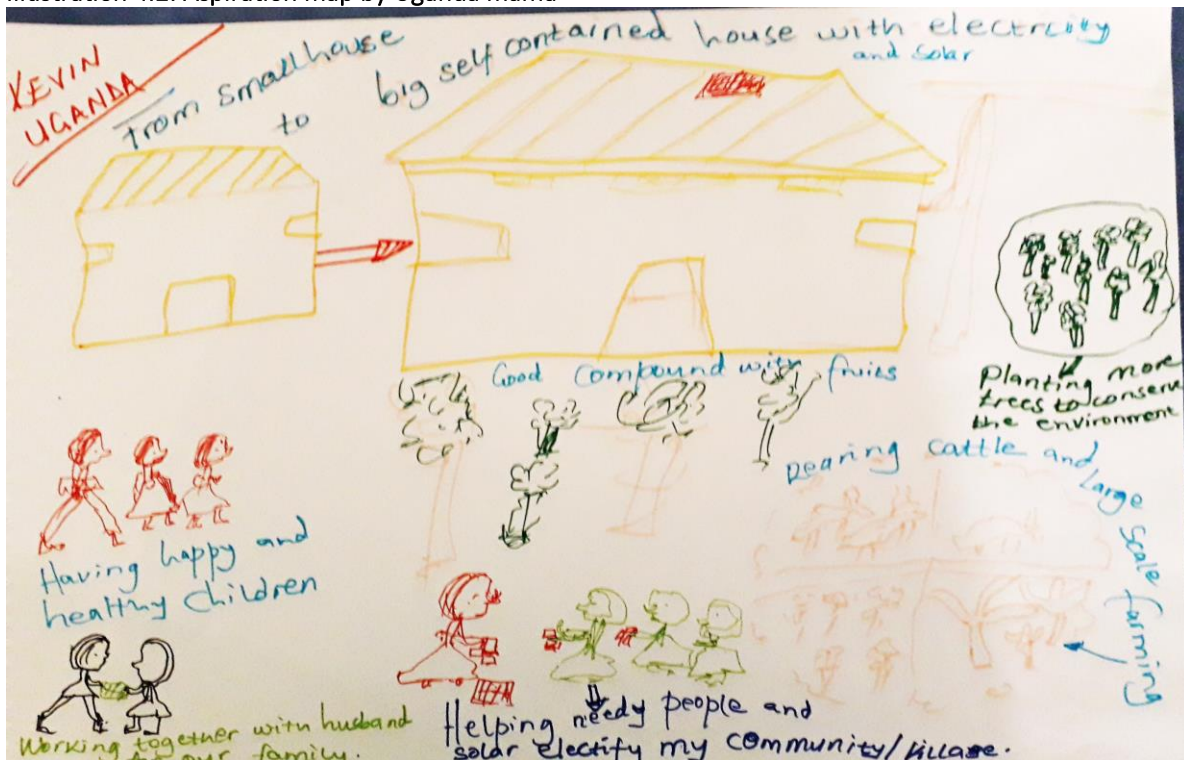 Illustration Aspiration map by Uganda Mama
KEVIN
UGANDA
From small house
to
big self contained house with electrcity
and solar
Good compound with fruits
Planting more
trees to conserve
the environment
Rearing cattle and
large
scale
farming
Having happy and
healthy children
Working together with husband
our family.
Helping needy people and
solar electify my community/village.